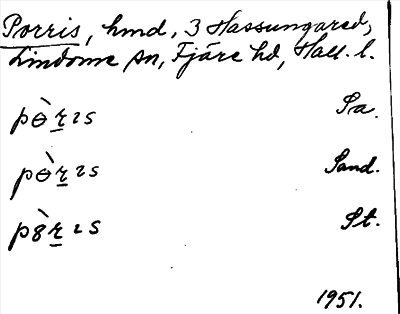 Porris, hmd, 3 Hassungared,
Lindome sn, Fjäre hd, Hall. l.
pɵ̀r̲ɪs Sa.
pɵ̀r̲ɪs Sand.
p8̀r̲ɪs St.
1951.